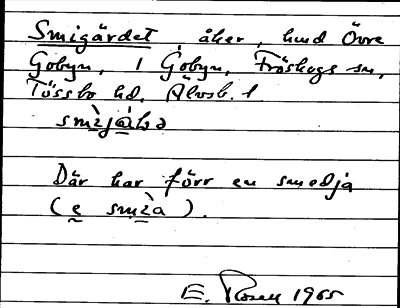 Smigärdet, åker, hmd Övre
Gobyn, i Gobyn, Fröskogs sn,
Tössbo hd, Älvsb. l.
Där har förr en smedja
E. Rosen 1965